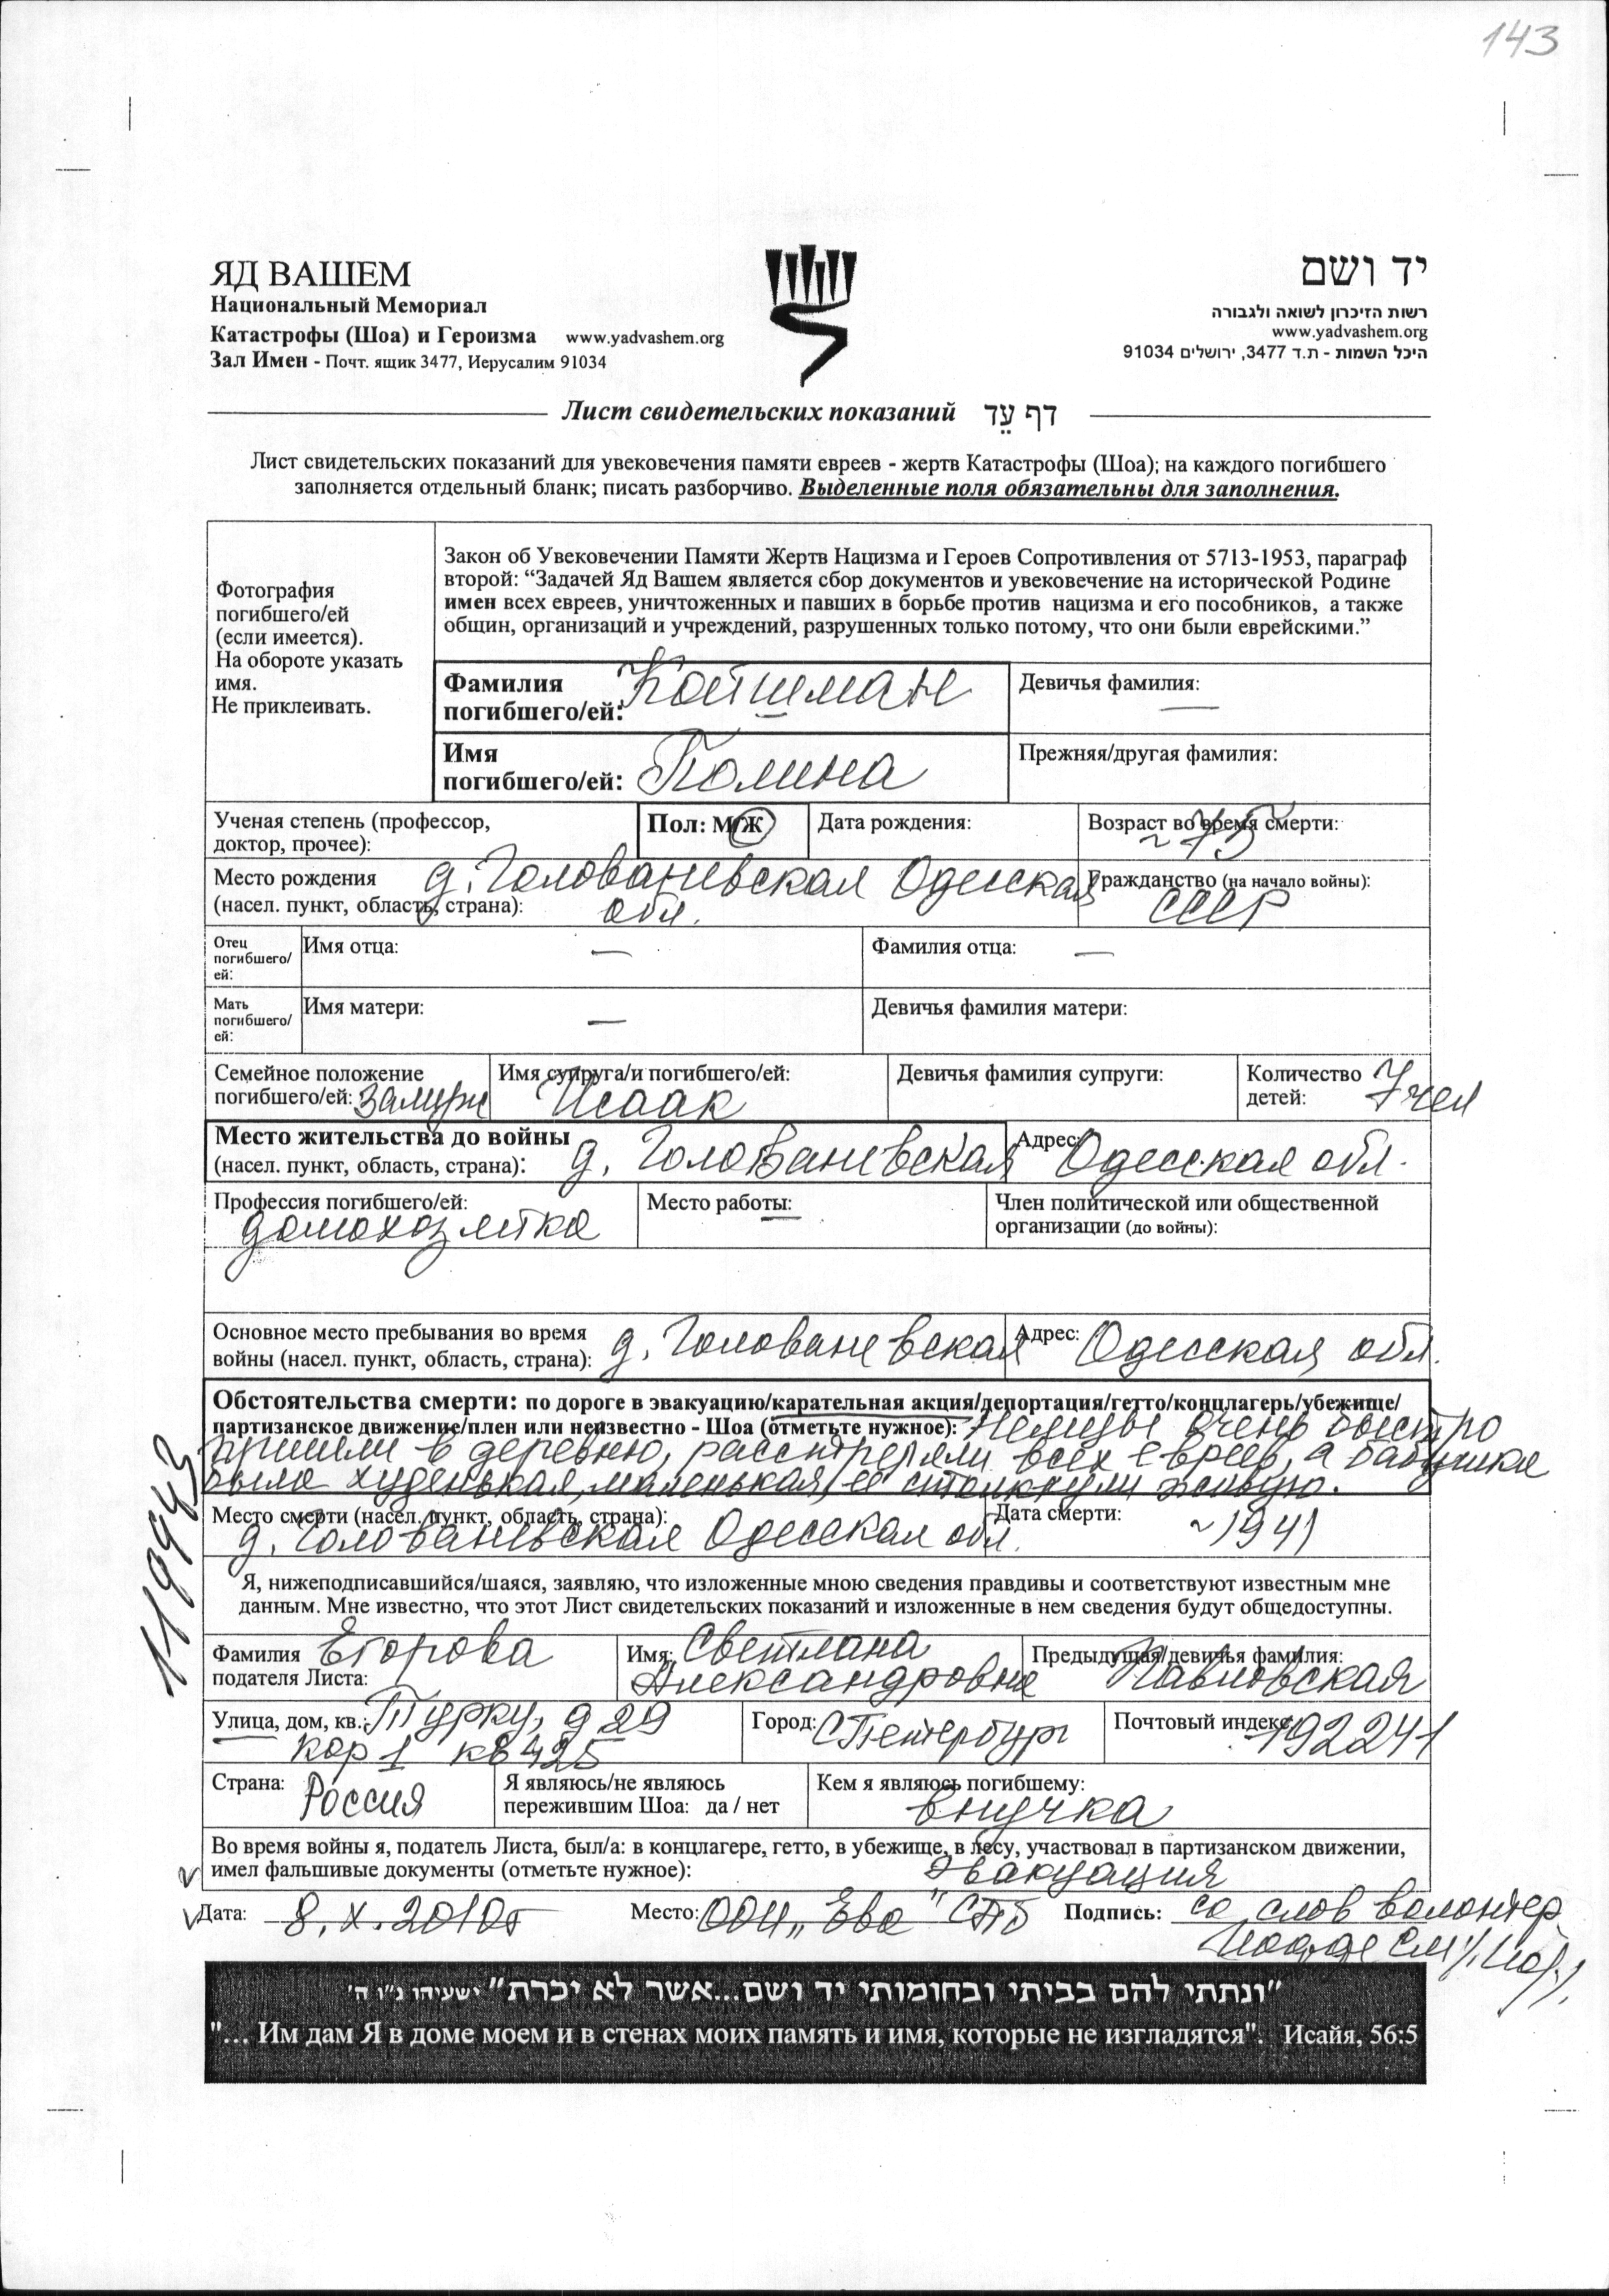 143
ЯД ВАШЕМ
Национальный Мемориал
Катастрофы (Шоа) и Героизма www.yadvashem.org
Зал Имен - Почт. ящик 3477, Иерусалим 91034
יד ושם
רשות הזיכרון לשואה ולגבורה
www.yadvashem.org
היכל השמות - ת.ד 3477, ירושלים 91034
Лист свидетельских показаний דף עֵד
Лист свидетельских показаний для увековечения памяти евреев - жертв Катастрофы (Шоа); на каждого погибшего
заполняется отдельный бланк; писать разборчиво. Выделенные поля обязательны для заполнения.
Фотография
погибшего/ей
(если имеется).
На обороте указать
имя.
Не приклеивать.
Закон об Увековечении Памяти Жертв Нацизма и Героев Сопротивления от 5713-1953, параграф
второй: “Задачей Яд Вашем является сбор документов и увековечение на исторической Родине
имен всех евреев, уничтоженных и павших в борьбе против нацизма и его пособников, а также
общин, организаций и учреждений, разрушенных только потому, что они были еврейскими.”
Фамилия
погибшего/ей: Койшман
Девичья фамилия: —
Имя
погибшего/ей: Полина
Прежняя/другая фамилия:
Ученая степень (профессор,
доктор, прочее):
Пол: М/Ж
Дата рождения:
Возраст во время смерти:
~75
Место рождения д. Голованевская Одесская
(насел. пункт, область, страна): обл.
Гражданство (на начало войны):
СССР
Отец
погибшего/
ей:
Имя отца: —
Фамилия отца: —
Мать
погибшего/
ей:
Имя матери: —
Девичья фамилия матери:
Семейное положение
погибшего/ей: замужн
Имя супруга/и погибшего/ей:
Исаак
Девичья фамилия супруги:
Количество
детей: 7 чел
Место жительства до войны
(насел. пункт, область, страна): д. Голованевская
Адрес: Одесская обл.
Профессия погибшего/ей:
домохозяйка
Место работы: —
Член политической или общественной
организации (до войны):
Основное место пребывания во время
войны (насел. пункт, область, страна): д. Голованевская
Адрес: Одесская обл.
Обстоятельства смерти: по дороге в эвакуацию/карательная акция/депортация/гетто/концлагерь/убежище/
партизанское движение/плен или неизвестно - Шоа (отметьте нужное): Немцы очень быстро
пришли в деревню, расстреляли всех евреев, а бабушка
была худенькая, маленькая, её столкнули живую.
119943
Место смерти (насел. пункт, область, страна):
д. Голованевская Одесская обл.
Дата смерти:
~1941
Я, нижеподписавшийся/шаяся, заявляю, что изложенные мною сведения правдивы и соответствуют известным мне
данным. Мне известно, что этот Лист свидетельских показаний и изложенные в нем сведения будут общедоступны.
Фамилия Егорова
подателя Листа:
Имя: Светлана
Александровна
Предыдущая/девичья фамилия:
Павловская
Улица, дом, кв.: Турку, д 29
кор 1 кв 425
Город: С Петербург
Почтовый индекс: 192241
Страна: Россия
Я являюсь/не являюсь
пережившим Шоа: да / нет
Кем я являюсь погибшему:
внучка
Во время войны я, податель Листа, был/а: в концлагере, гетто, в убежище, в лесу, участвовал в партизанском движении,
имел фальшивые документы (отметьте нужное): эвакуация
Дата: 8.X.2010г Место: ООИ "Ева" СПб Подпись: со слов волонтер
"ונתתי להם בביתי ובחומותי יד ושם...אשר לא יכרת" ישעיהו נ"ו ה'
"... Им дам Я в доме моем и в стенах моих память и имя, которые не изгладятся". Исайя, 56:5